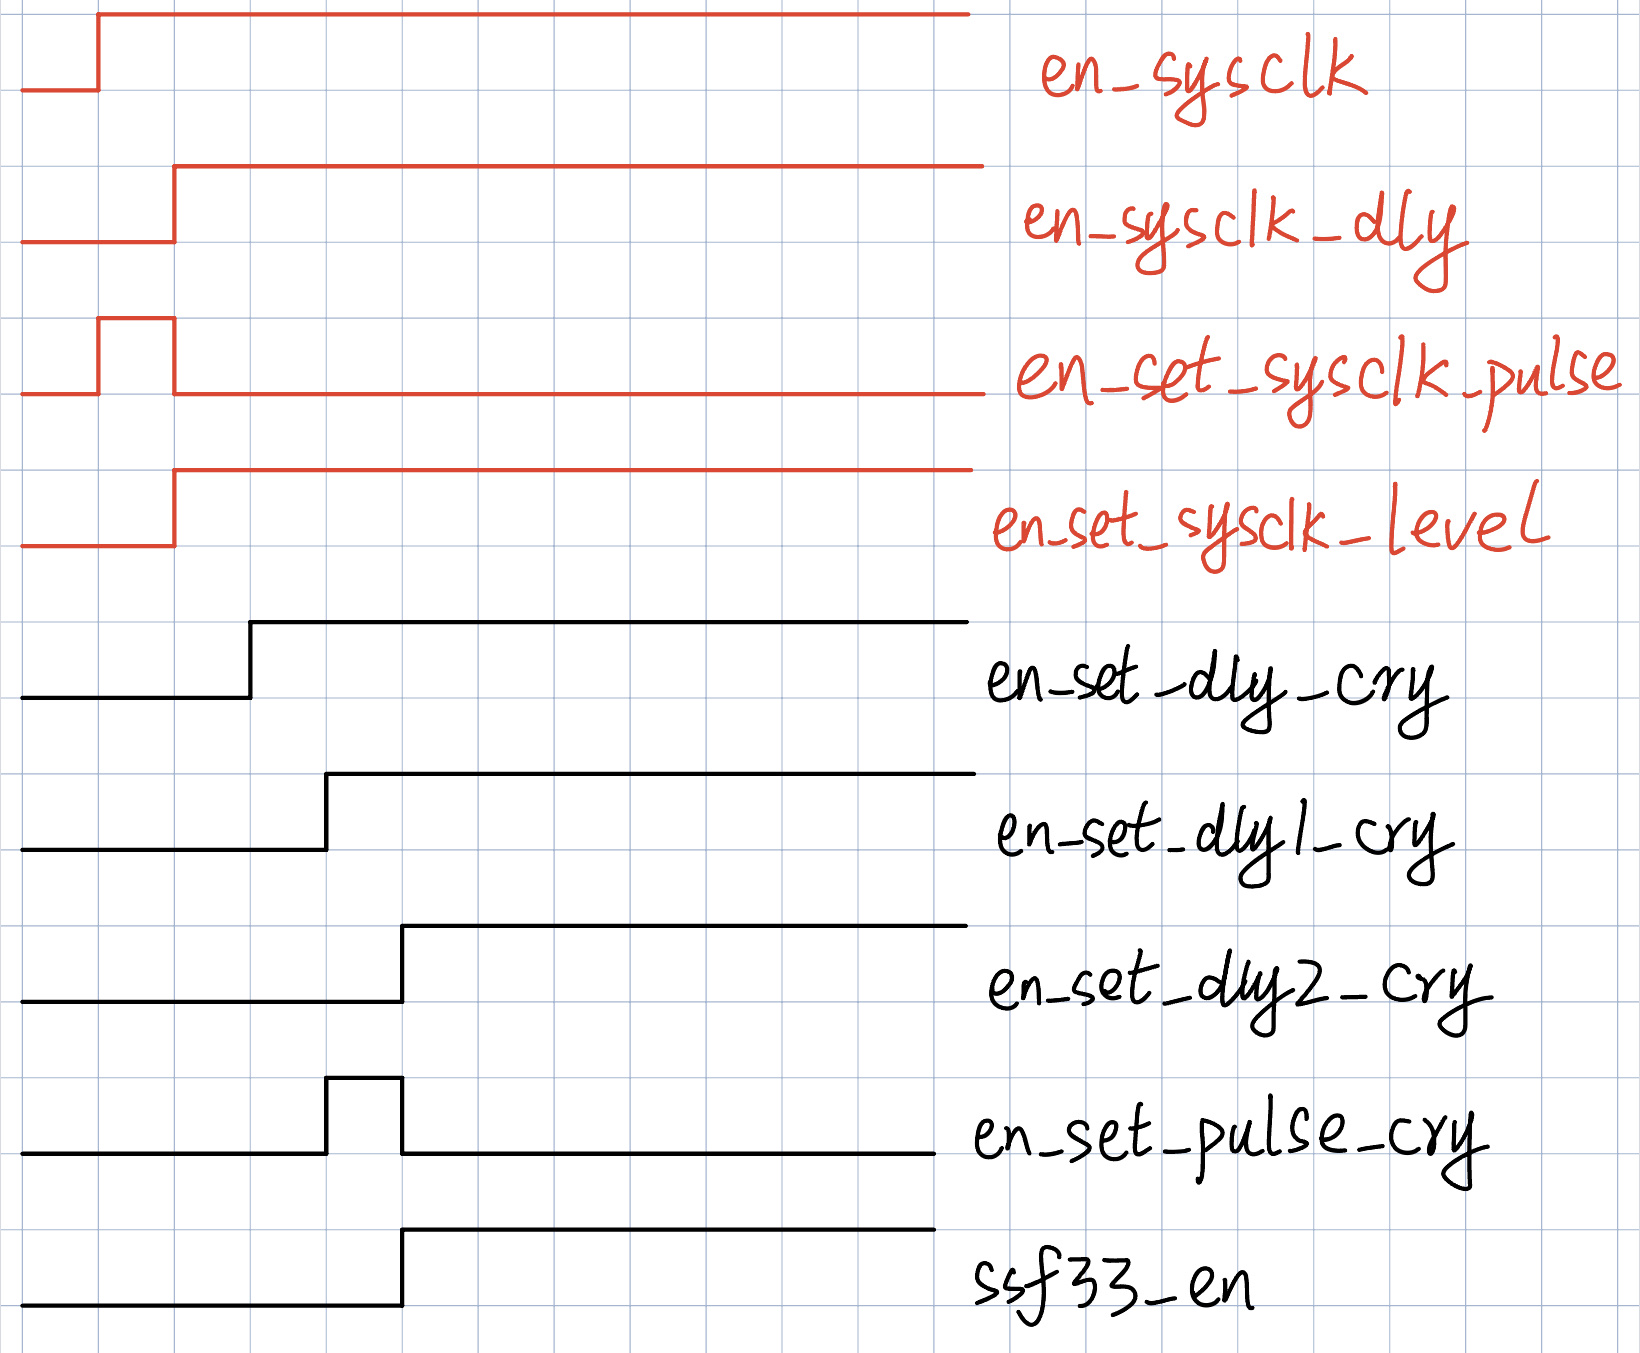 en_sysclk
en_sysclk_dly
en_set_sysclk_pulse
en_set_sysclk_level
en_set_dly_cry
en_set_dly1_cry
en_set_dly2_cry
en_set_pulse_cry
ssf33_en